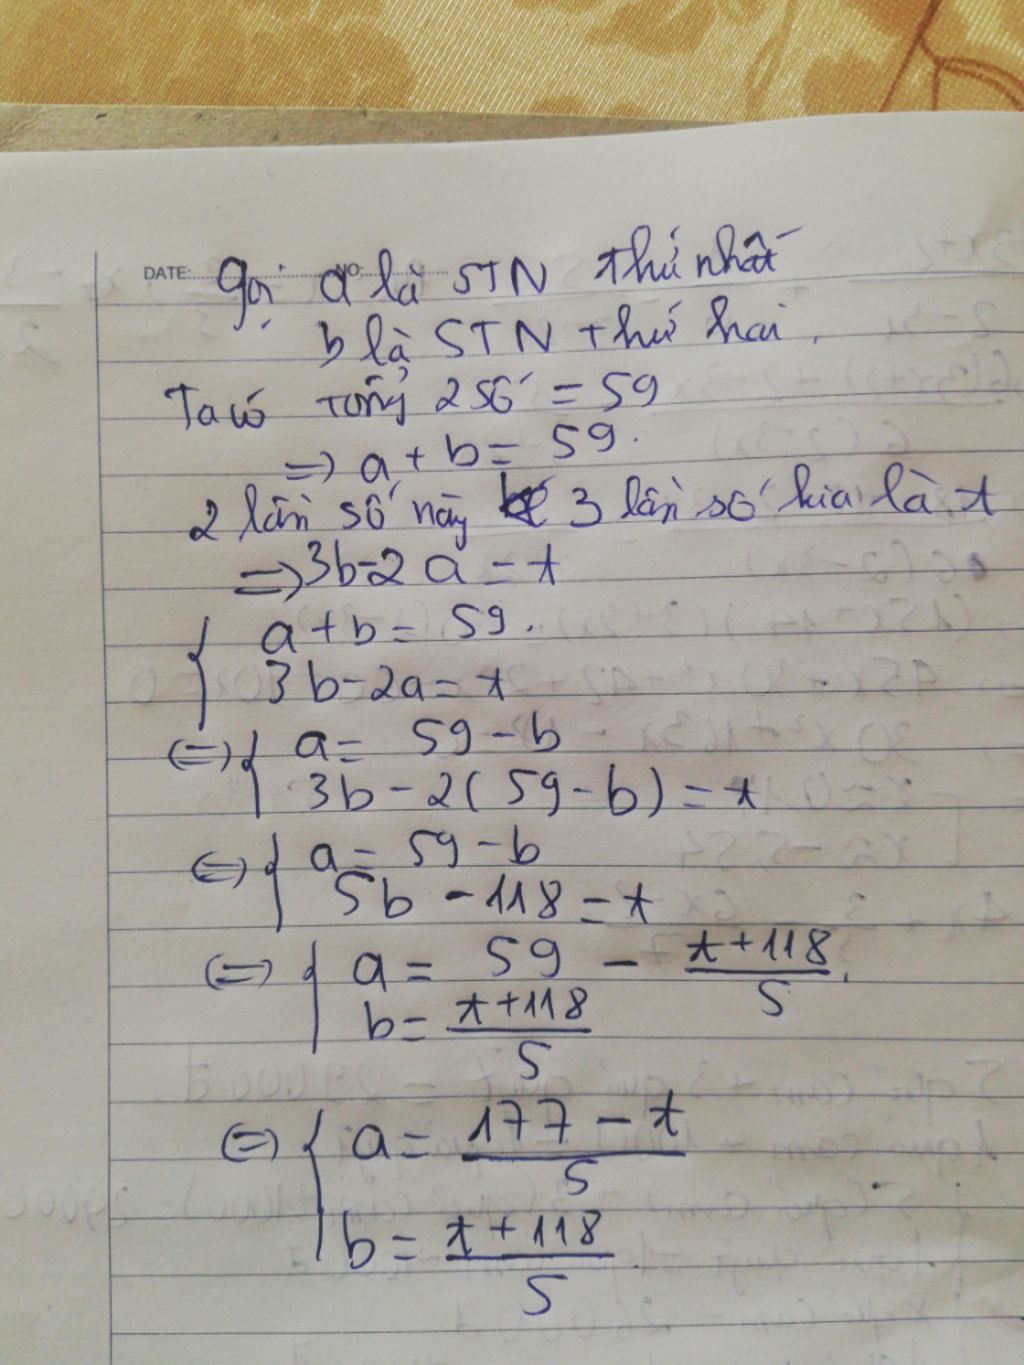 DATE: NO:
Gọi a là STN thứ nhất
b là STN thứ hai.
Ta có tổng 2 số = 59
=> a + b = 59.
2 lần số này 3 lần số kia là t
=> 3b - 2a = t
{ a + b = 59.
3b - 2a = t
<=> { a = 59 - b
3b - 2(59 - b) = t
<=> { a = 59 - b
5b - 118 = t
<=> { a = 59 - (t + 118)/5.
b = (t + 118)/5
<=> { a = (177 - t)/5
b = (t + 118)/5